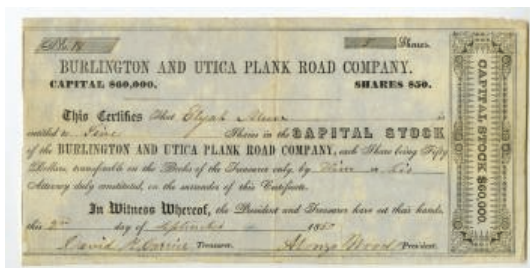 No. 5 Shares.
BURLINGTON AND UTICA PLANK ROAD COMPANY.
CAPITAL $60,000. SHARES $50.
This Certifies That Elijah is
entitled to Five Shares in the CAPITAL STOCK
of the BURLINGTON AND UTICA PLANK ROAD COMPANY, each Share being Fifty
Dollars, transferable on the Books of the Treasurer only, by him or his
Attorney duly constituted, on the surrender of this Certificate.
In Witness Whereof, the President and Treasurer have set their hands,
this 2nd day of September 185
David Treasurer. Alonzo Wood President.
CAPITAL STOCK $60,000